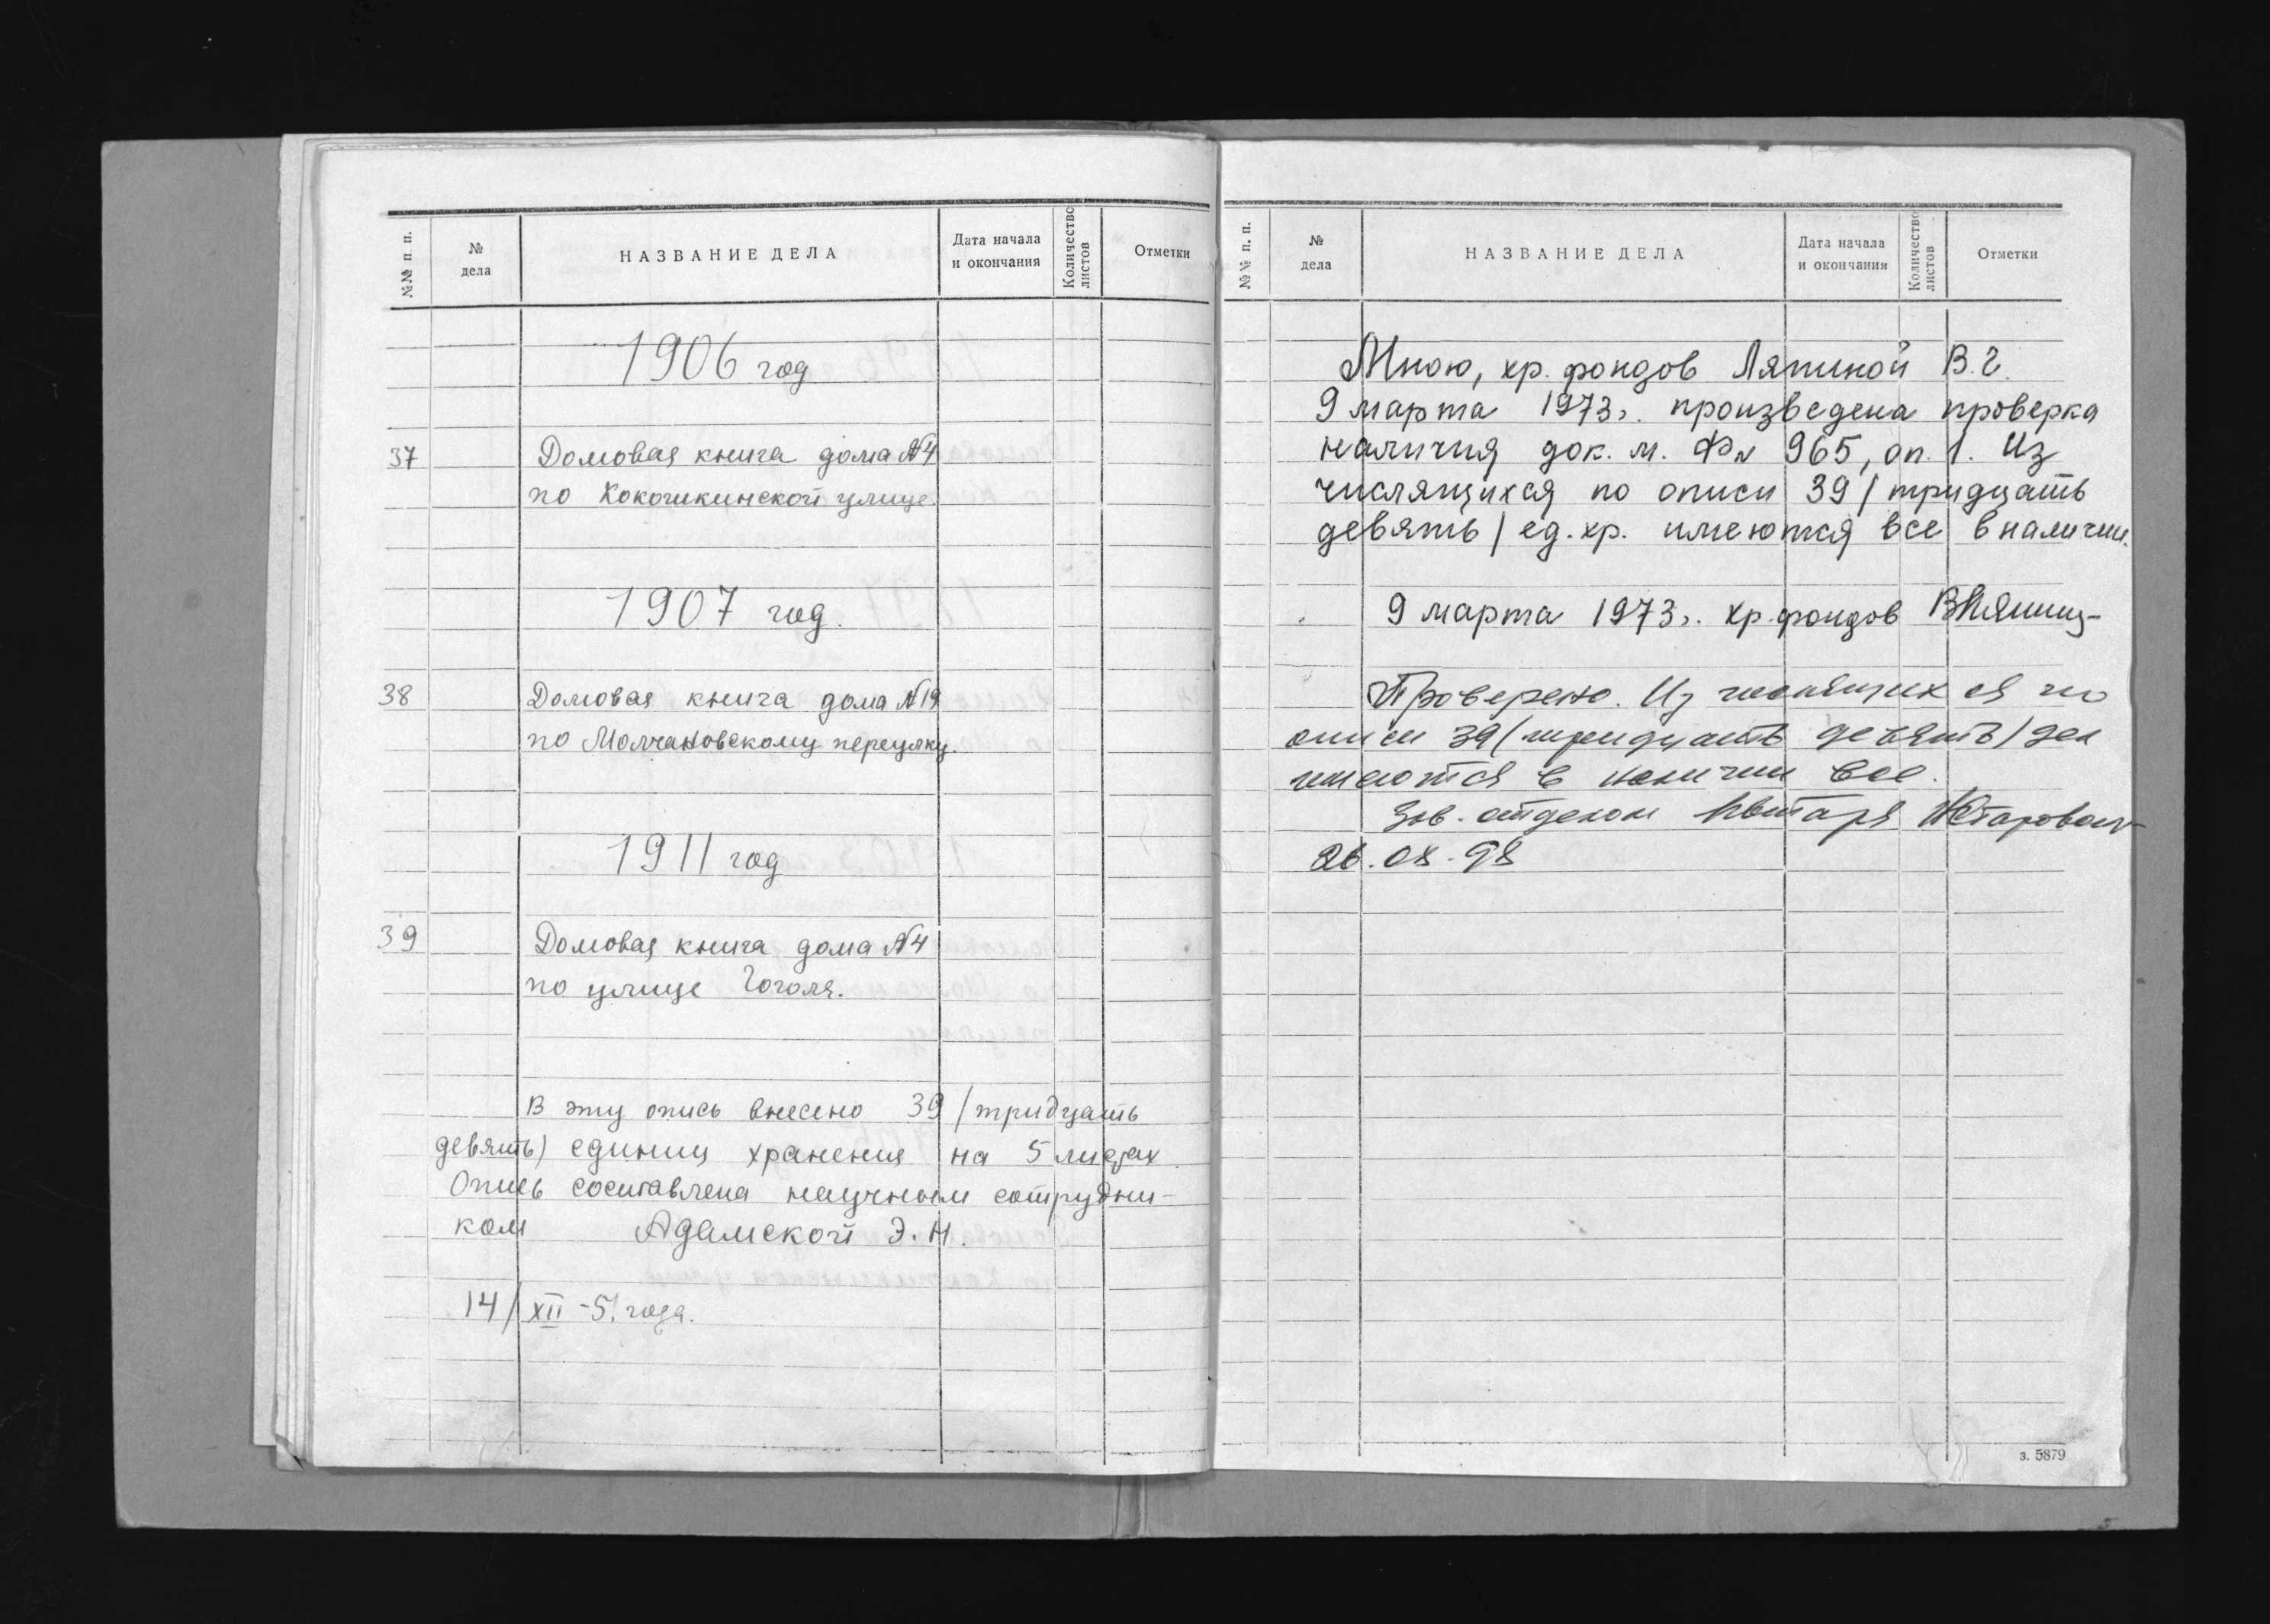 №№ п. п.
№ дела
НАЗВАНИЕ ДЕЛА
Дата начала и окончания
Количество листов
Отметки
1906 год
37 Домовая книга дома №4
по Кокошкинской улице.
1907 год.
38 Домовая книга дома №19
по Молчановскому переулку.
1911 год
39 Домовая книга дома №4
по улице Гоголя.
В эту опись внесено 39 /тридцать
девять) единиц хранения на 5 листах.
Опись составлена научным сотрудни-
ком Адамской Э.Н.
14/XII-5 года.
№№ п. п.
№ дела
НАЗВАНИЕ ДЕЛА
Дата начала и окончания
Количество листов
Отметки
Мною, хр. фондов Ляпиной В.Г.
9 марта 1973г. произведена проверка
наличия док. м. Ф№ 965, оп. 1. Из
числящихся по описи 39 /тридцать
девять/ ед. хр. имеются все в наличии.
9 марта 1973г. Хр. фондов
Проверено. Из числящихся по
описи 39 (тридцать девять) дел
имеются в наличии все.
Зав. отделом
26.08.98
з. 5879